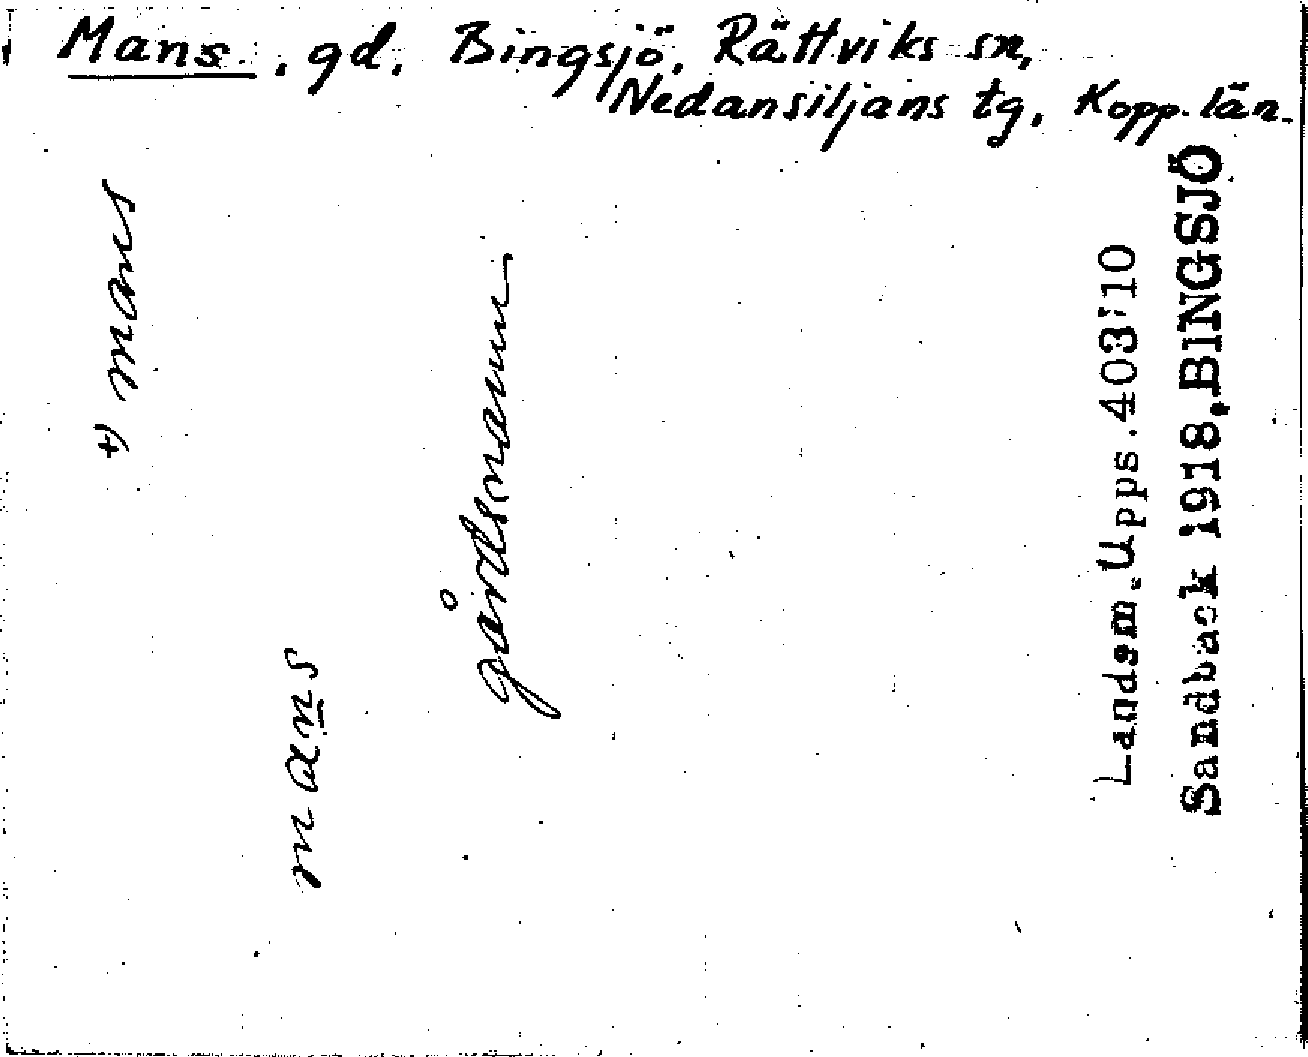 Mans, gd, Bingsjö, Rättviks sn,
Nedansiljans tg, Kopp. län.
+) mans
mans
gårdsnamn
Landsm. Upps. 403:10
Sandback 1918, BINGSJÖ